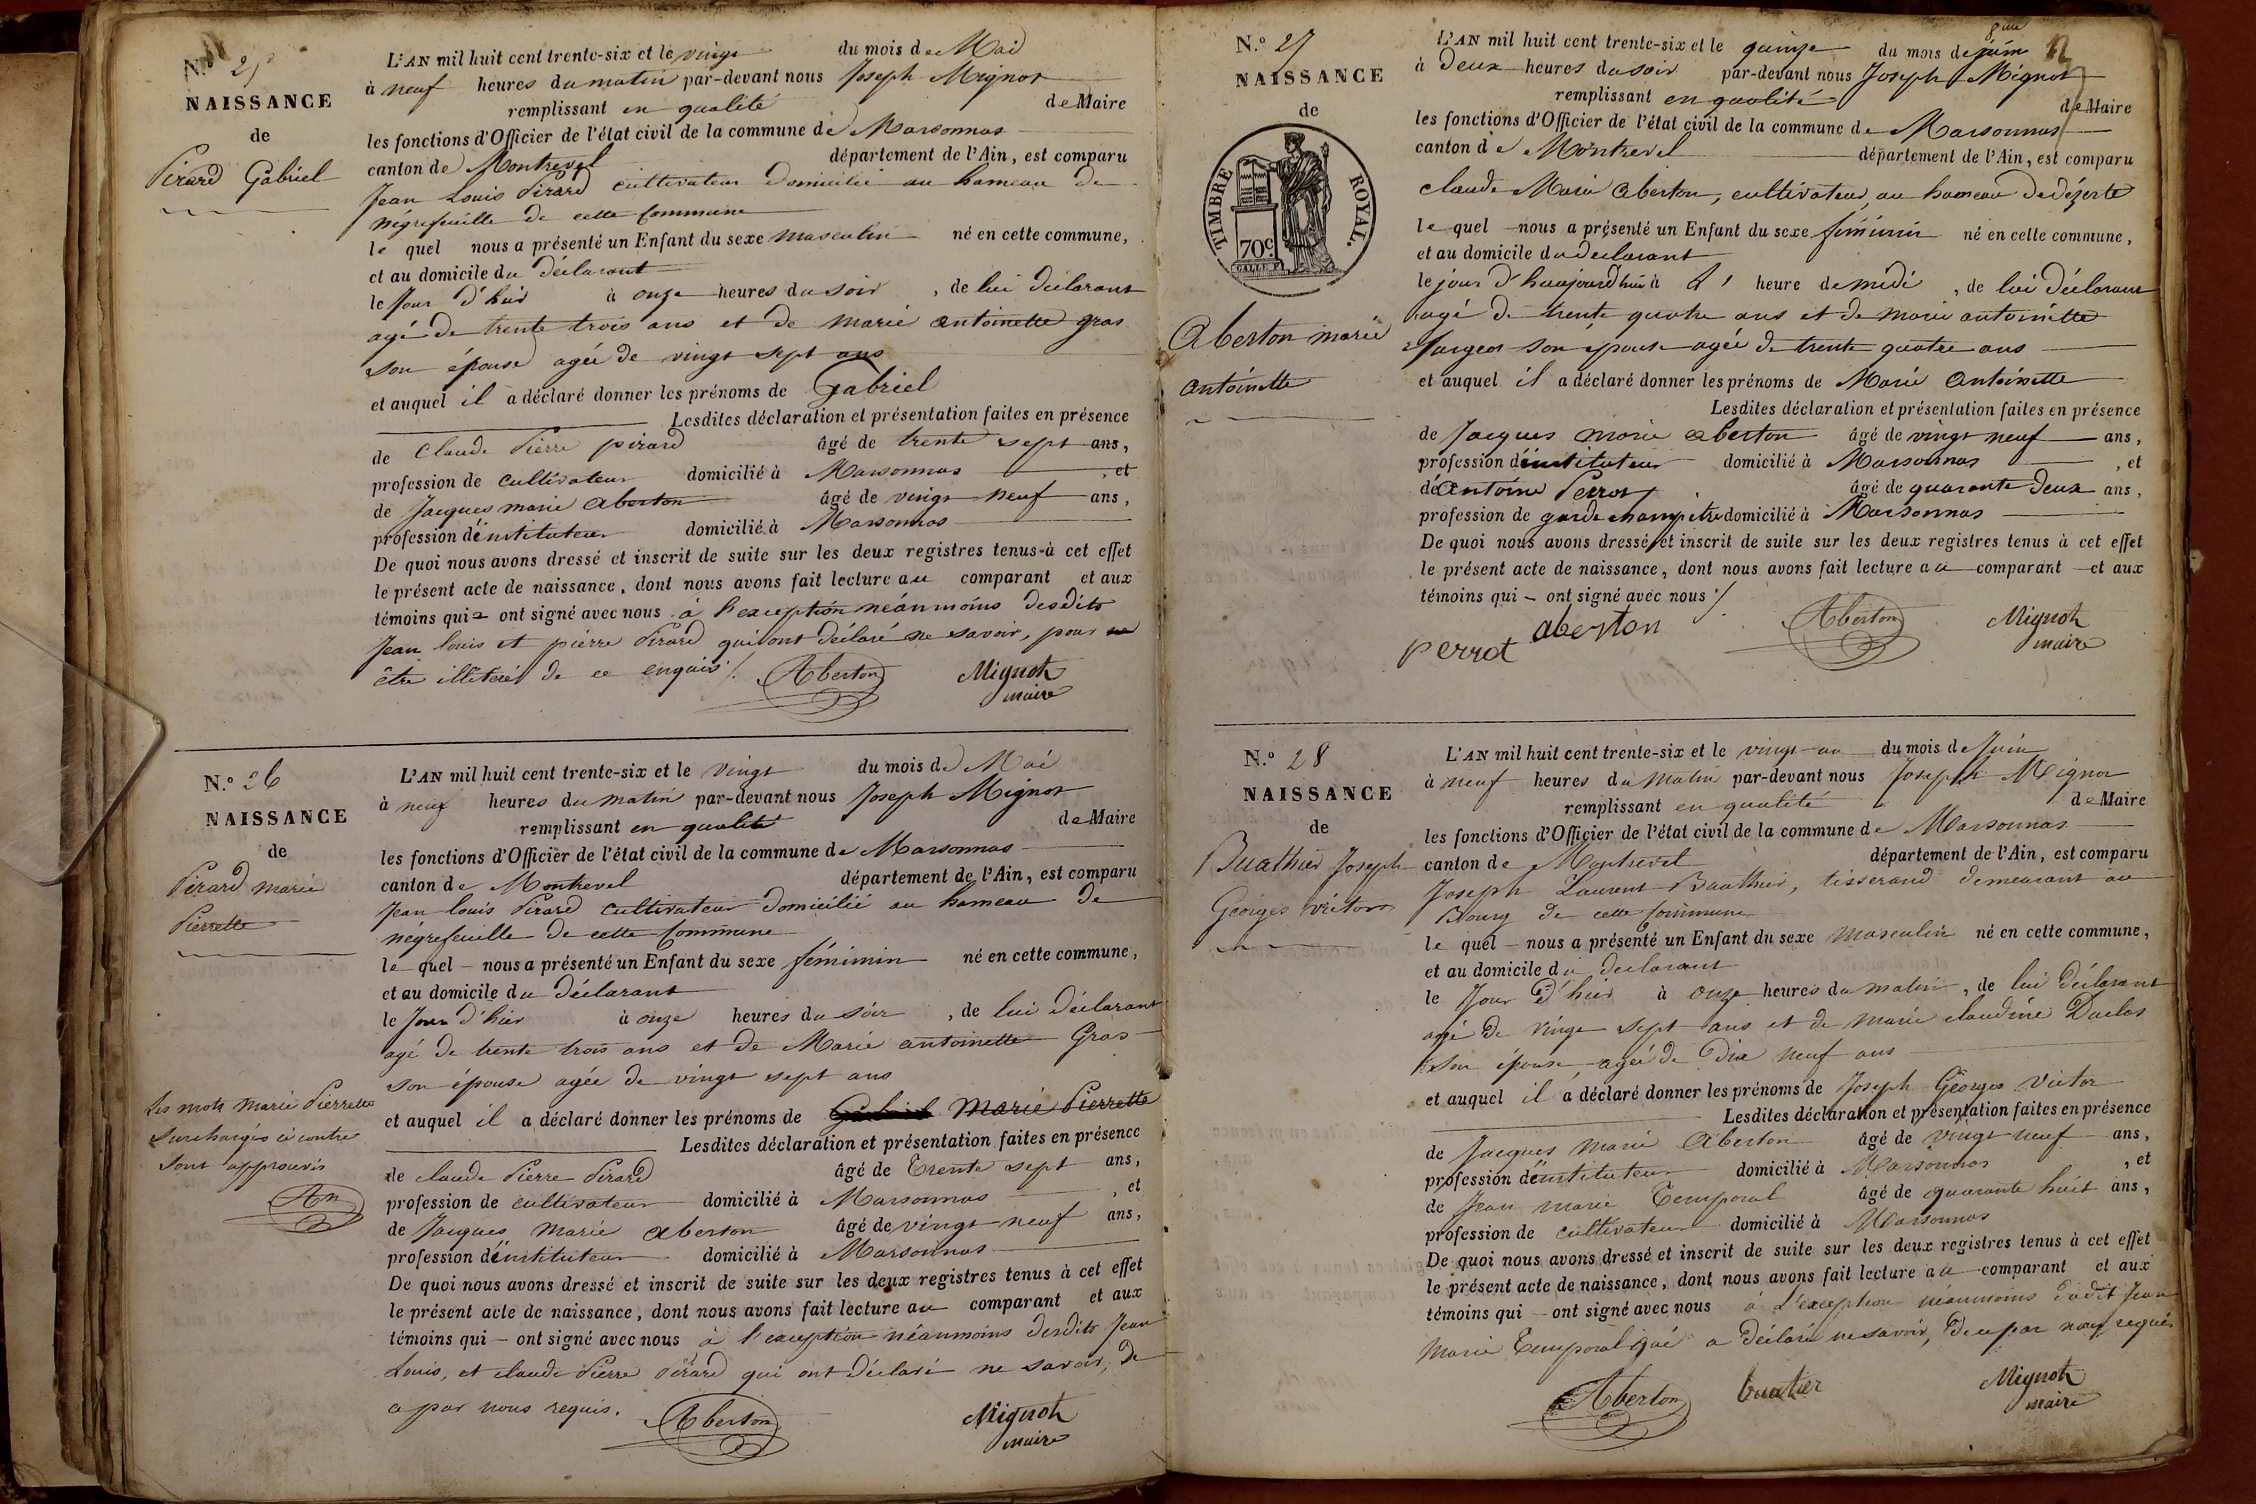 N.º 25
NAISSANCE
de
Pirard Gabriel
L'AN mil huit cent trente-six et le vingt du mois de Mai
à neuf heures du matin par-devant nous Joseph Mignot
remplissant en qualité de Maire
les fonctions d'Officier de l'état civil de la commune de Marsonnas
canton de Montrevel département de l'Ain, est comparu
Jean Louis Pirard cultivateur domicilié au hameau de
négrefeuille de cette Commune
le quel nous a présenté un Enfant du sexe masculin né en cette commune,
et au domicile du déclarant
le Jour d'hier à onze heures du soir, de lui déclarant
agé de trente trois ans et de marie antoinette gras
son épouse agée de vingt sept ans
et auquel il a déclaré donner les prénoms de Gabriel
Lesdites déclaration et présentation faites en présence
de Claude Pierre pirard âgé de trente sept ans,
profession de cultivateur domicilié à Marsonnas, et
de Jacques marie aberton âgé de vingt neuf ans,
profession d'instituteur domicilié à Marsonnas
De quoi nous avons dressé et inscrit de suite sur les deux registres tenus à cet effet
le présent acte de naissance, dont nous avons fait lecture au comparant et aux
témoins qui ont signé avec nous à l'exception néanmoins desdits
Jean louis et pierre Pirard qui ont déclaré ne savoir, pour
être illeterés de ce enquis ./.
Aberton Mignot
maire
N.º 26
NAISSANCE
de
Pirard marie
Pierrette
Les mots Marie Pierrette
Surchargés ci contre
sont approuvés
An
L'AN mil huit cent trente-six et le vingt du mois de Mai
à neuf heures du matin par-devant nous Joseph Mignot
remplissant en qualité de Maire
les fonctions d'Officier de l'état civil de la commune de Marsonnas
canton de Montrevel département de l'Ain, est comparu
Jean louis Pirard cultivateur domicilié au hameau de
négrefeuille de cette Commune
le quel nous a présenté un Enfant du sexe féminin né en cette commune,
et au domicile du déclarant
le Jour d'hier à onze heures du soir, de lui déclarant
agé de trente trois ans et de Marie antoinette Gras
son épouse agée de vingt sept ans
et auquel il a déclaré donner les prénoms de Gabriel Marie Pierrette
Lesdites déclaration et présentation faites en présence
de claude Pierre Pirard âgé de Trente sept ans,
profession de cultivateur domicilié à Marsonnas, et
de Jacques Marie aberton âgé de vingt neuf ans,
profession d'instituteur domicilié à Marsonnas
De quoi nous avons dressé et inscrit de suite sur les deux registres tenus à cet effet
le présent acte de naissance, dont nous avons fait lecture au comparant et aux
témoins qui ont signé avec nous à l'exception néanmoins desdits Jean
Louis, et claude Pierre Pirard qui ont déclaré ne savoir, de
a par nous requis.
Aberton Mignot
maire
N.º 27
NAISSANCE
de
TIMBRE ROYAL.
70 c.
Aberton marie
antoinette
L'AN mil huit cent trente-six et le quinze du mois de juin
à Deux heures du soir par-devant nous Joseph Mignot
remplissant en qualité de Maire
les fonctions d'Officier de l'état civil de la commune de Marsonnas
canton de Montrevel département de l'Ain, est comparu
claude Marie Aberton, cultivateur, au hameau de dézerte
le quel nous a présenté un Enfant du sexe féminin né en cette commune,
et au domicile du declarant
le jour d'haujourd'hui à L' heure de midi, de lui déclarant
agé de trente quatre ans et de marie antoinette
fargeot son épouse agée de trente quatre ans
et auquel il a déclaré donner les prénoms de Marie Antoinette
Lesdites déclaration et présentation faites en présence
de Jacques marie aberton âgé de vingt neuf ans,
profession d'instituteur domicilié à Marsonnas, et
de antoine Perrot âgé de quarante Deux ans,
profession de garde champêtre domicilié à Marsonnas
De quoi nous avons dressé et inscrit de suite sur les deux registres tenus à cet effet
le présent acte de naissance, dont nous avons fait lecture au comparant et aux
témoins qui ont signé avec nous ./.
perrot aberton Aberton Mignot
maire
N.º 28
NAISSANCE
de
Buathier Joseph
Georges victor
L'AN mil huit cent trente-six et le vingt-un du mois de Juin
à neuf heures du matin par-devant nous Joseph Mignot
remplissant en qualité de Maire
les fonctions d'Officier de l'état civil de la commune de Marsonnas
canton de Montrevel département de l'Ain, est comparu
Joseph Laurent Buathier, tisserand demeurant au
Bourg de cette Commune
le quel nous a présenté un Enfant du sexe masculin né en cette commune,
et au domicile du declarant
le Jour d'hier à onze heures du matin, de lui déclarant
agé de vingt sept ans et de marie claudine Duclos
son épouse agée de Dix neuf ans
et auquel il a déclaré donner les prénoms de Joseph Georges Victor
Lesdites déclaration et présentation faites en présence
de Jacques Marie Aberton âgé de vingt neuf ans,
profession d'instituteur domicilié à Marsonnas, et
de Jean marie Temporal âgé de quarante huit ans,
profession de cultivateur domicilié à Marsonnas
De quoi nous avons dressé et inscrit de suite sur les deux registres tenus à cet effet
le présent acte de naissance, dont nous avons fait lecture au comparant et aux
témoins qui ont signé avec nous à L'exception néanmoins dudit Jean
Marie Temporal qui a déclaré ne savoir, de ce par nous requis
Aberton buatier Mignot
maire